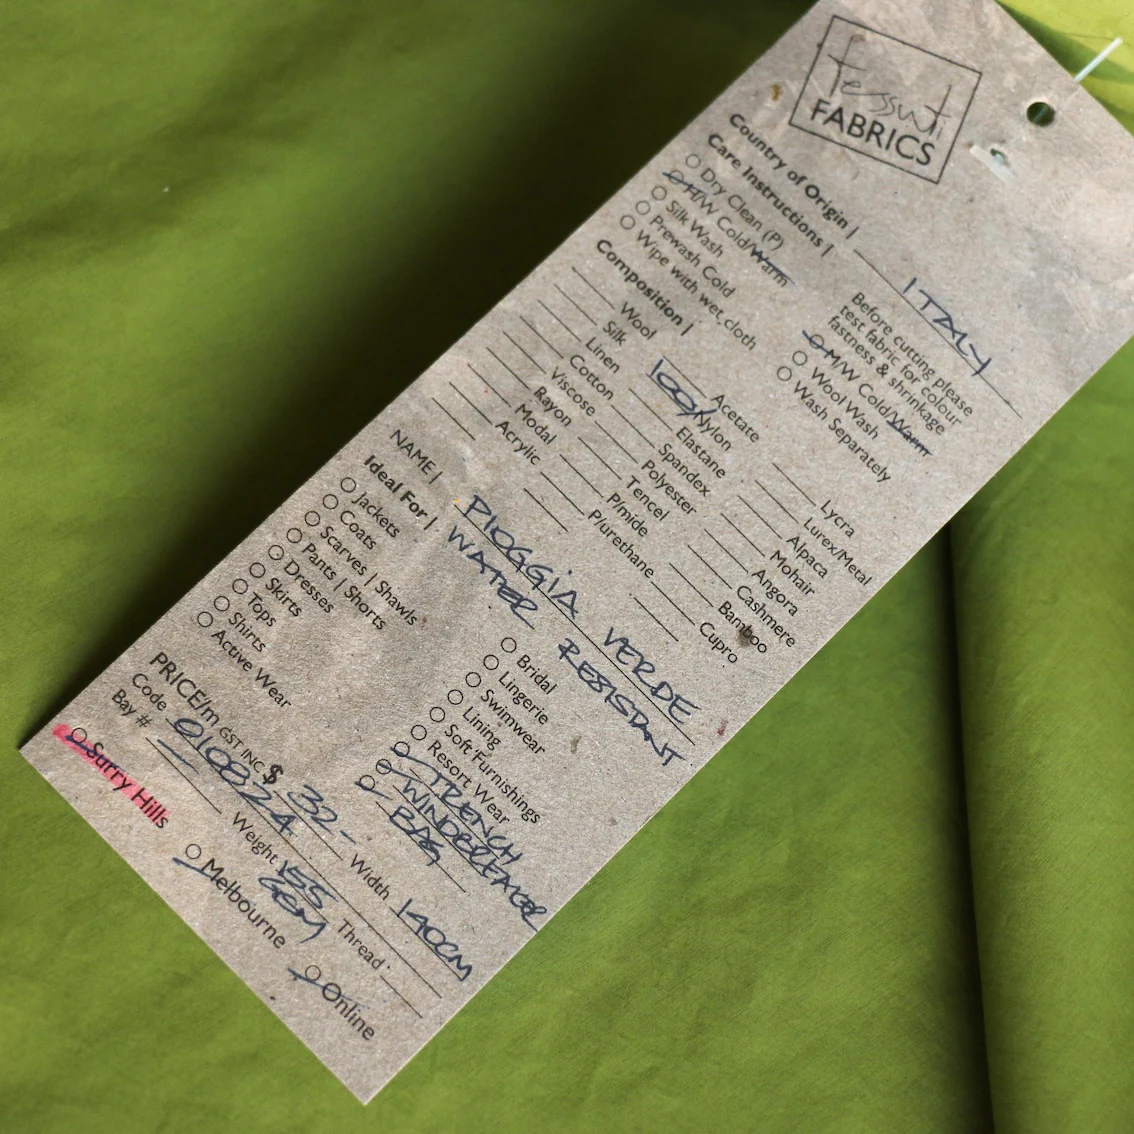 Tessuti
FABRICS
Country of Origin | ITALY
Care Instructions |
Before cutting please
test fabric for colour
fastness & shrinkage
Dry Clean (P)
H/W Cold/Warm
Silk Wash
Prewash Cold
Wipe with wet cloth
M/W Cold/Warm
Wool Wash
Wash Separately
Composition |
Wool
Silk
Linen
Cotton
Viscose
Rayon
Modal
Acrylic
Acetate
100 Nylon
Elastane
Spandex
Polyester
Tencel
P/mide
P/urethane
Lycra
Lurex/Metal
Alpaca
Mohair
Angora
Cashmere
Bamboo
Cupro
NAME | PIOGGIA VERDE
WATER RESISTANT
Ideal For |
Jackets
Coats
Scarves | Shawls
Pants | Shorts
Dresses
Skirts
Tops
Shirts
Active Wear
Bridal
Lingerie
Swimwear
Lining
Soft Furnishings
Resort Wear
TRENCH
WINDBREAKER
BAG
PRICE/m GST INC $ 32- Width 140CM
Code 010824 Weight 155 Thread
GSM
Bay # —
Surry Hills Melbourne Online